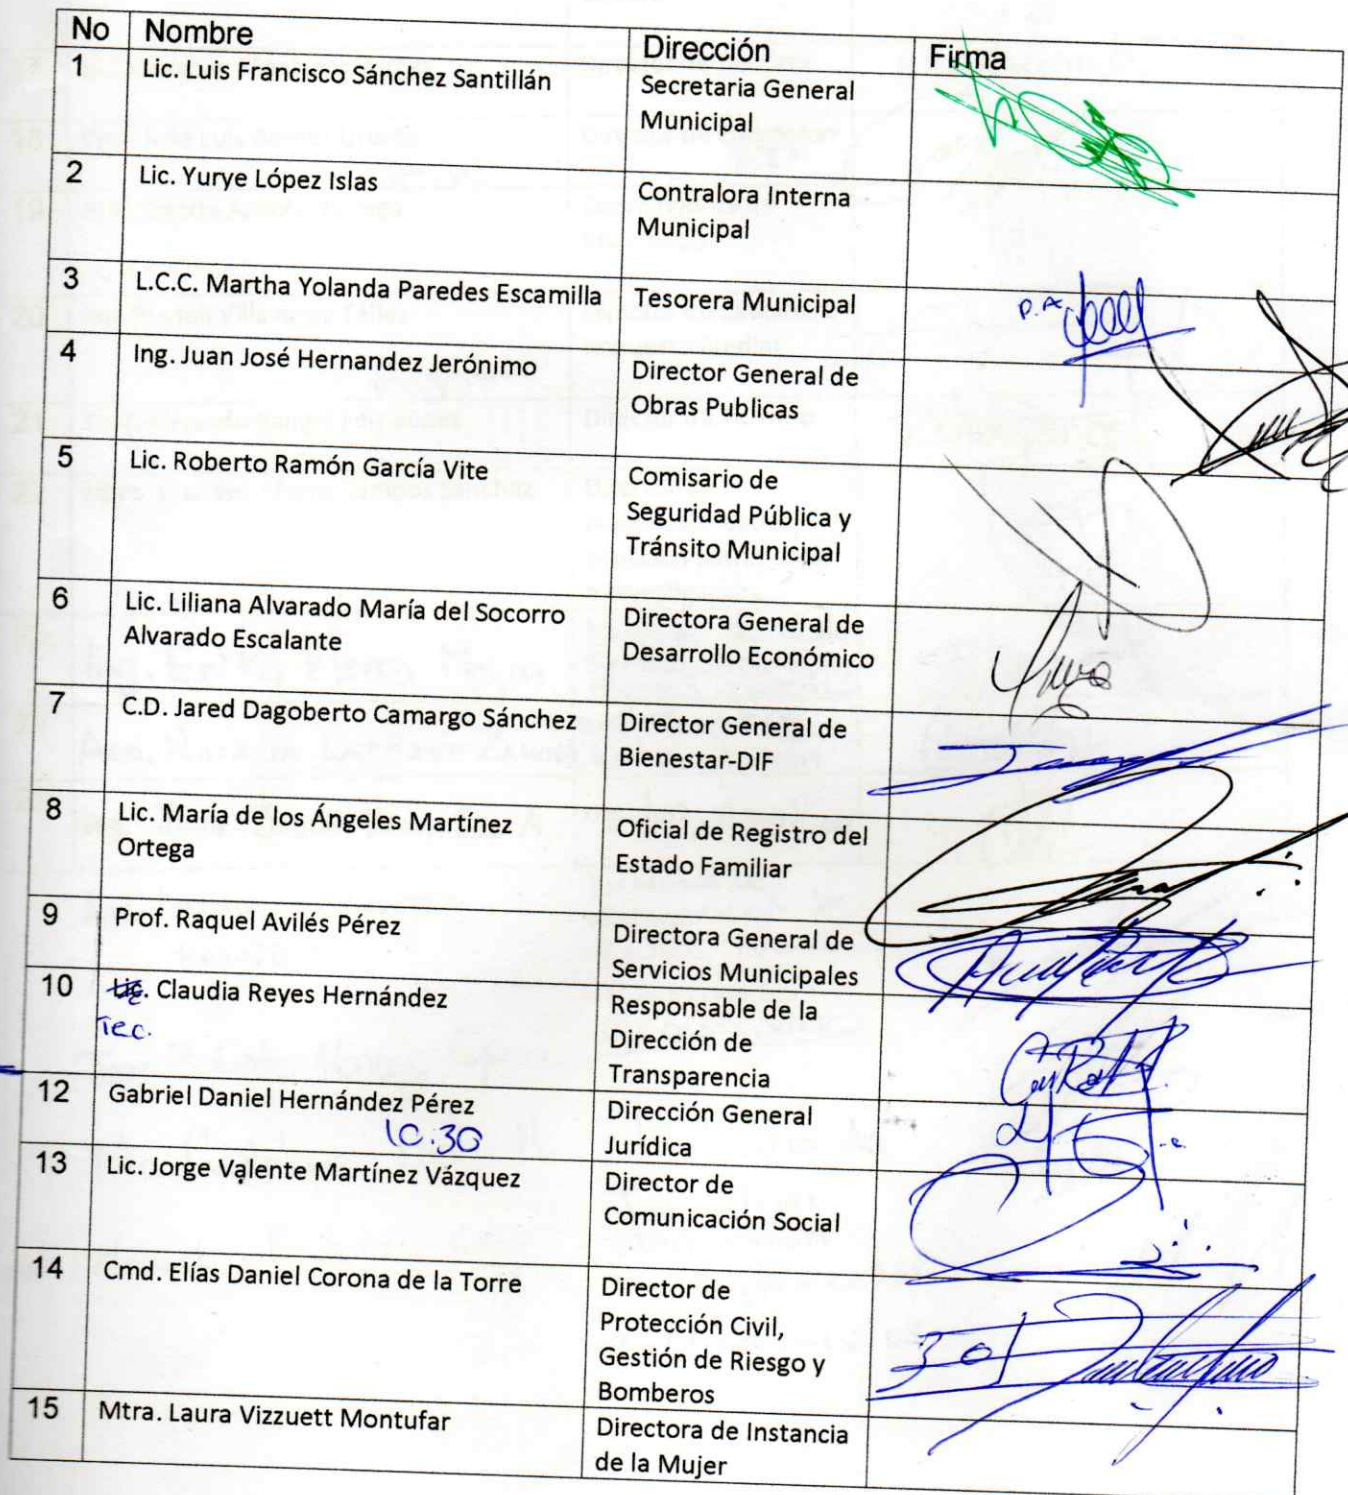 No Nombre Dirección Firma
1 Lic. Luis Francisco Sánchez Santillán Secretaria General
Municipal
2 Lic. Yurye López Islas Contralora Interna
Municipal
3 L.C.C. Martha Yolanda Paredes Escamilla Tesorera Municipal P.A.
4 Ing. Juan José Hernandez Jerónimo Director General de
Obras Publicas
5 Lic. Roberto Ramón García Vite Comisario de
Seguridad Pública y
Tránsito Municipal
6 Lic. Liliana Alvarado María del Socorro Directora General de
Alvarado Escalante Desarrollo Económico
7 C.D. Jared Dagoberto Camargo Sánchez Director General de
Bienestar-DIF
8 Lic. María de los Ángeles Martínez Oficial de Registro del
Ortega Estado Familiar
9 Prof. Raquel Avilés Pérez Directora General de
Servicios Municipales
10 Lic. Claudia Reyes Hernández Responsable de la
Tec. Dirección de
Transparencia
12 Gabriel Daniel Hernández Pérez Dirección General
10:30 Jurídica
13 Lic. Jorge Valente Martínez Vázquez Director de
Comunicación Social
14 Cmd. Elías Daniel Corona de la Torre Director de
Protección Civil,
Gestión de Riesgo y
Bomberos
15 Mtra. Laura Vizzuett Montufar Directora de Instancia
de la Mujer